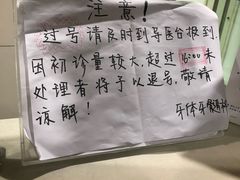 注意！
过号请及时到导医台报到,
因初诊量较大,超过16:00未
处理者将予以退号,敬请
谅解！
牙体牙髓科